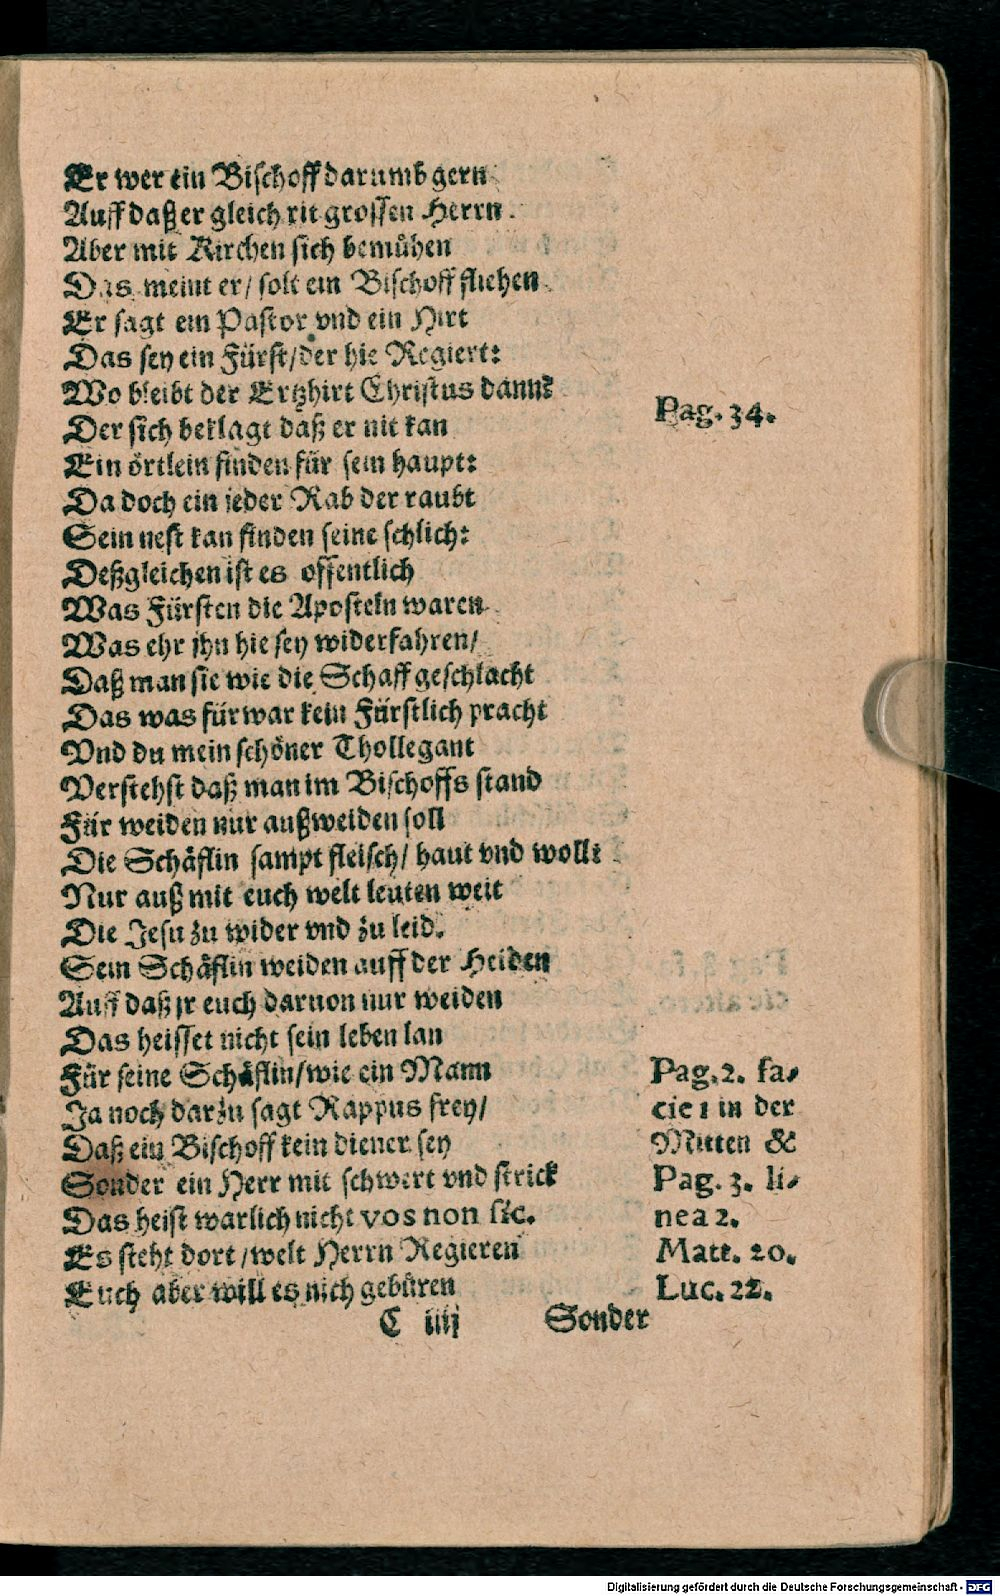 Er wer ein Bischoff darumb gern
Auff daß er gleich rit grossen Herrn.
Aber mit Kirchen sich bemühen
Das meint er/ solt ein Bischoff fliehen
Er sagt ein Pastor vnd ein Hirt
Das sey ein Fürst/der hie Regiert:
Wo bleibt der Ertzhirt Christus dann?
Der sich beklagt daß er nit kan
Pag. 34.
Ein örtlein finden für sein haupt:
Da doch ein jeder Rab der raubt
Sein nest kan finden seine schlich:
Deßgleichen ist es offentlich
Was Fürsten die Aposteln waren
Was ehr jhn hie sey widerfahren/
Daß man sie wie die Schaff geschlacht
Das was fürwar kein Fürstlich pracht
Vnd du mein schöner Thollegant
Verstehst daß man im Bischoffs stand
Für weiden nur außweiden soll
Die Schäflin sampt fleisch/ haut vnd woll:
Nur auß mit euch welt leuten weit
Die Jesu zu wider vnd zu leid.
Sein Schäflin weiden auff der Heiden
Auff daß jr euch daruon nur weiden
Das heisset nicht sein leben lan
Für seine Schäflin/wie ein Mann
Ja noch darzu sagt Rappus frey/
Daß ein Bischoff kein diener sey
Sonder ein Herr mit schwert vnd strick
Das heist warlich nicht vos non sic.
Es steht dort/welt Herrn Regieren
Euch aber will es nich gebüren
Pag. 2. fa-
cie 1 in der
Mitten &
Pag. 3. li-
nea 2.
Matt. 20.
Luc. 22.
C iiij
Sonder
Digitalisierung gefördert durch die Deutsche Forschungsgemeinschaft - DFG